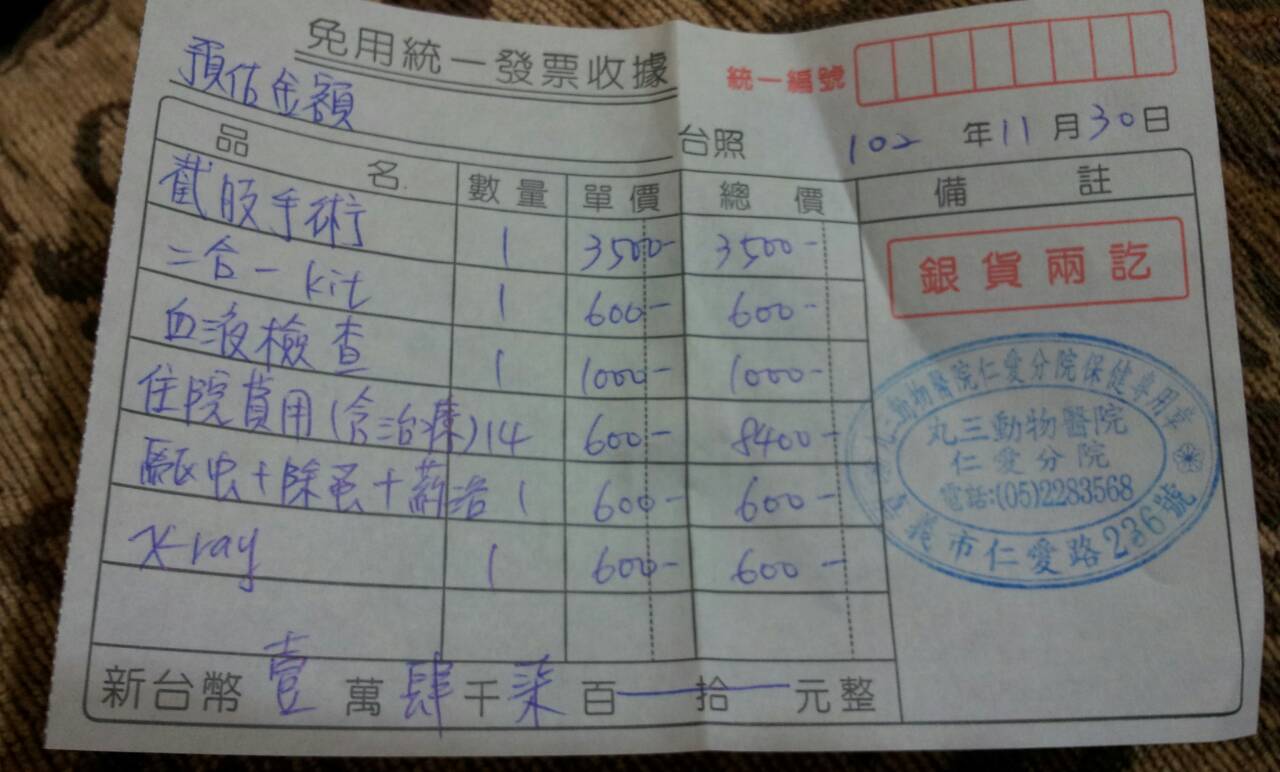 免用統一發票收據
統一編號
預估金額
台照
102 年 11 月 30 日
品名 數量 單價 總價 備註
截肢手術 1 3500- 3500-
二合一 kit 1 600- 600-
血液檢查 1 1000- 1000-
住院費用(含治療) 14 600- 8400-
驅虫+除蚤+藥浴 1 600- 600-
X-ray 1 600- 600-
新台幣 壹 萬 肆 千 柒 百 拾 元整
銀貨兩訖
動物醫院仁愛分院保健專用章
丸三動物醫院
仁愛分院
電話:(05)2283568
義市仁愛路236號